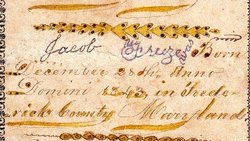 Jacob Born
December 28th, Anno
Domini 1843, in Frede
rick County Maryland